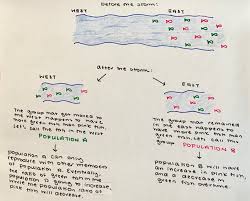 Before the storm:
WEST
EAST
After the storm:
WEST
The group that got moved to
the west happens to have
more green fish than pink fish,
Let's call the fish in the west
POPULATION A
population A can only
reproduce with other members
of population A. Eventually,
the ratio of green fish in the
population is going to increase,
while the population ratio of
pink fish will decrease.
EAST
The group that remained
in the east happens to
have more pink fish than
green fish. Let's call this
POPULATION B
population B will have
an increase in pink fish,
and a decrease in
green fish overtime.